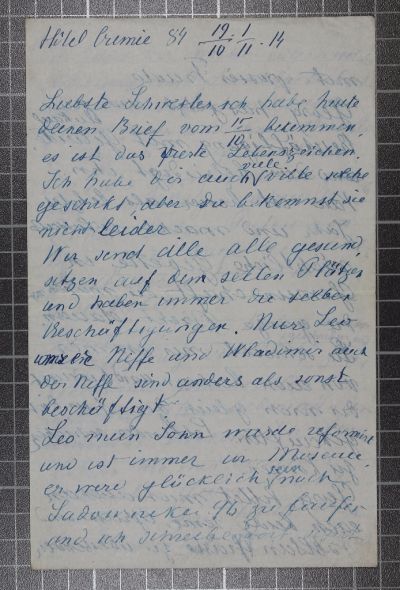 Hôtel Crimée 84 19/10 · 1/11 · 14
Liebste Schwester ich habe heute
deinen Brief vom 15/10 bekommen,
es ist das vierte Lebenszeichen.
Ich habe dir auch viele solche
geschikt aber du bekommst sie
nicht leider
Wir sind alle alle gesund,
sitzen auf dem selben Plätzen
und haben immer die selben
Beschäftigungen. Nur Leo
unser Niffe und Wladimir auch
der Niffe sind anders als sonst
beschäftigt
Leo mein Sohn wurde reformirt
und ist immer in Moscau.
er wird glücklich sein nach
zu laufen
und ich